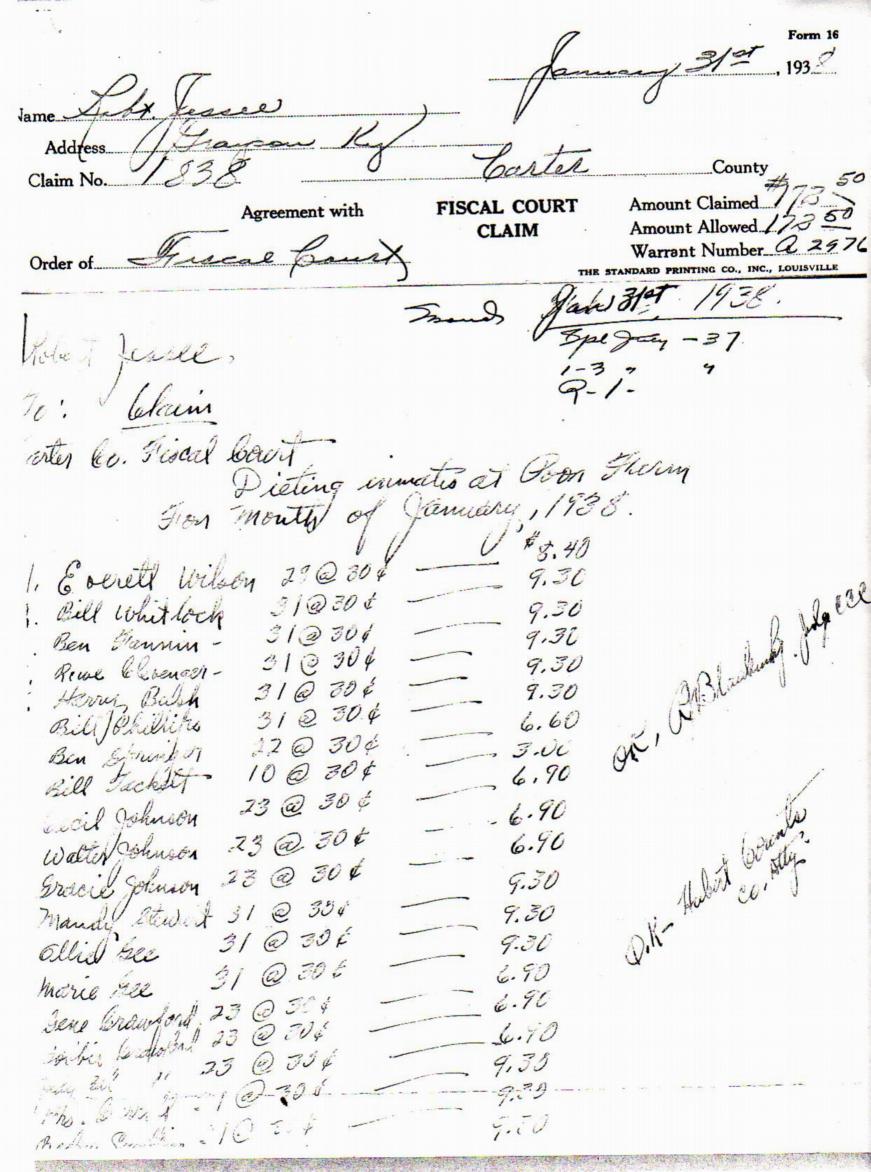 Form 16
January 31st, 1938
Name Robt. Jessee
Address Grayson Ky
Claim No. 1838 Carter County
Amount Claimed $173.50
Agreement with FISCAL COURT Amount Allowed 173 50
CLAIM Warrant Number A 2976
Order of Fiscal Court
THE STANDARD PRINTING CO., INC., LOUISVILLE
Jan 31st, 1938.
Robert Jessee, - 37
1-3 " "
To: Claim
Carter Co. Fiscal Court
Dieting inmates at Poor Farm
For Month of January, 1938.
1. Everett Wilson 29 @ 30¢ $8.40
Bill Whitlock 31 @ 30¢ 9.30
Ben Fannin - 31 @ 30¢ 9.30
31 @ 30¢ 9.30
Henry Bush 31 @ 30¢ 9.30
Bill Phillips 31 @ 30¢ 9.30
Ben 22 @ 30¢ 6.60
Bill Tackett 10 @ 30¢ 3.00
Cecil Johnson 23 @ 30¢ 6.90
Walter Johnson 23 @ 30¢ 6.90
Gracie Johnson 23 @ 30¢ 6.90
Mandy Stewart 31 @ 30¢ 9.30
Ollie Gee 31 @ 30¢ 9.30
Marie Gee 31 @ 30¢ 9.30
Gene Crawford 23 @ 30¢ 6.90
Crawford 23 @ 30¢ 6.90
" 23 @ 30¢ 6.90
Mrs. @ 30¢ 9.30
O.K- Hubert Counts
Co. Atty.